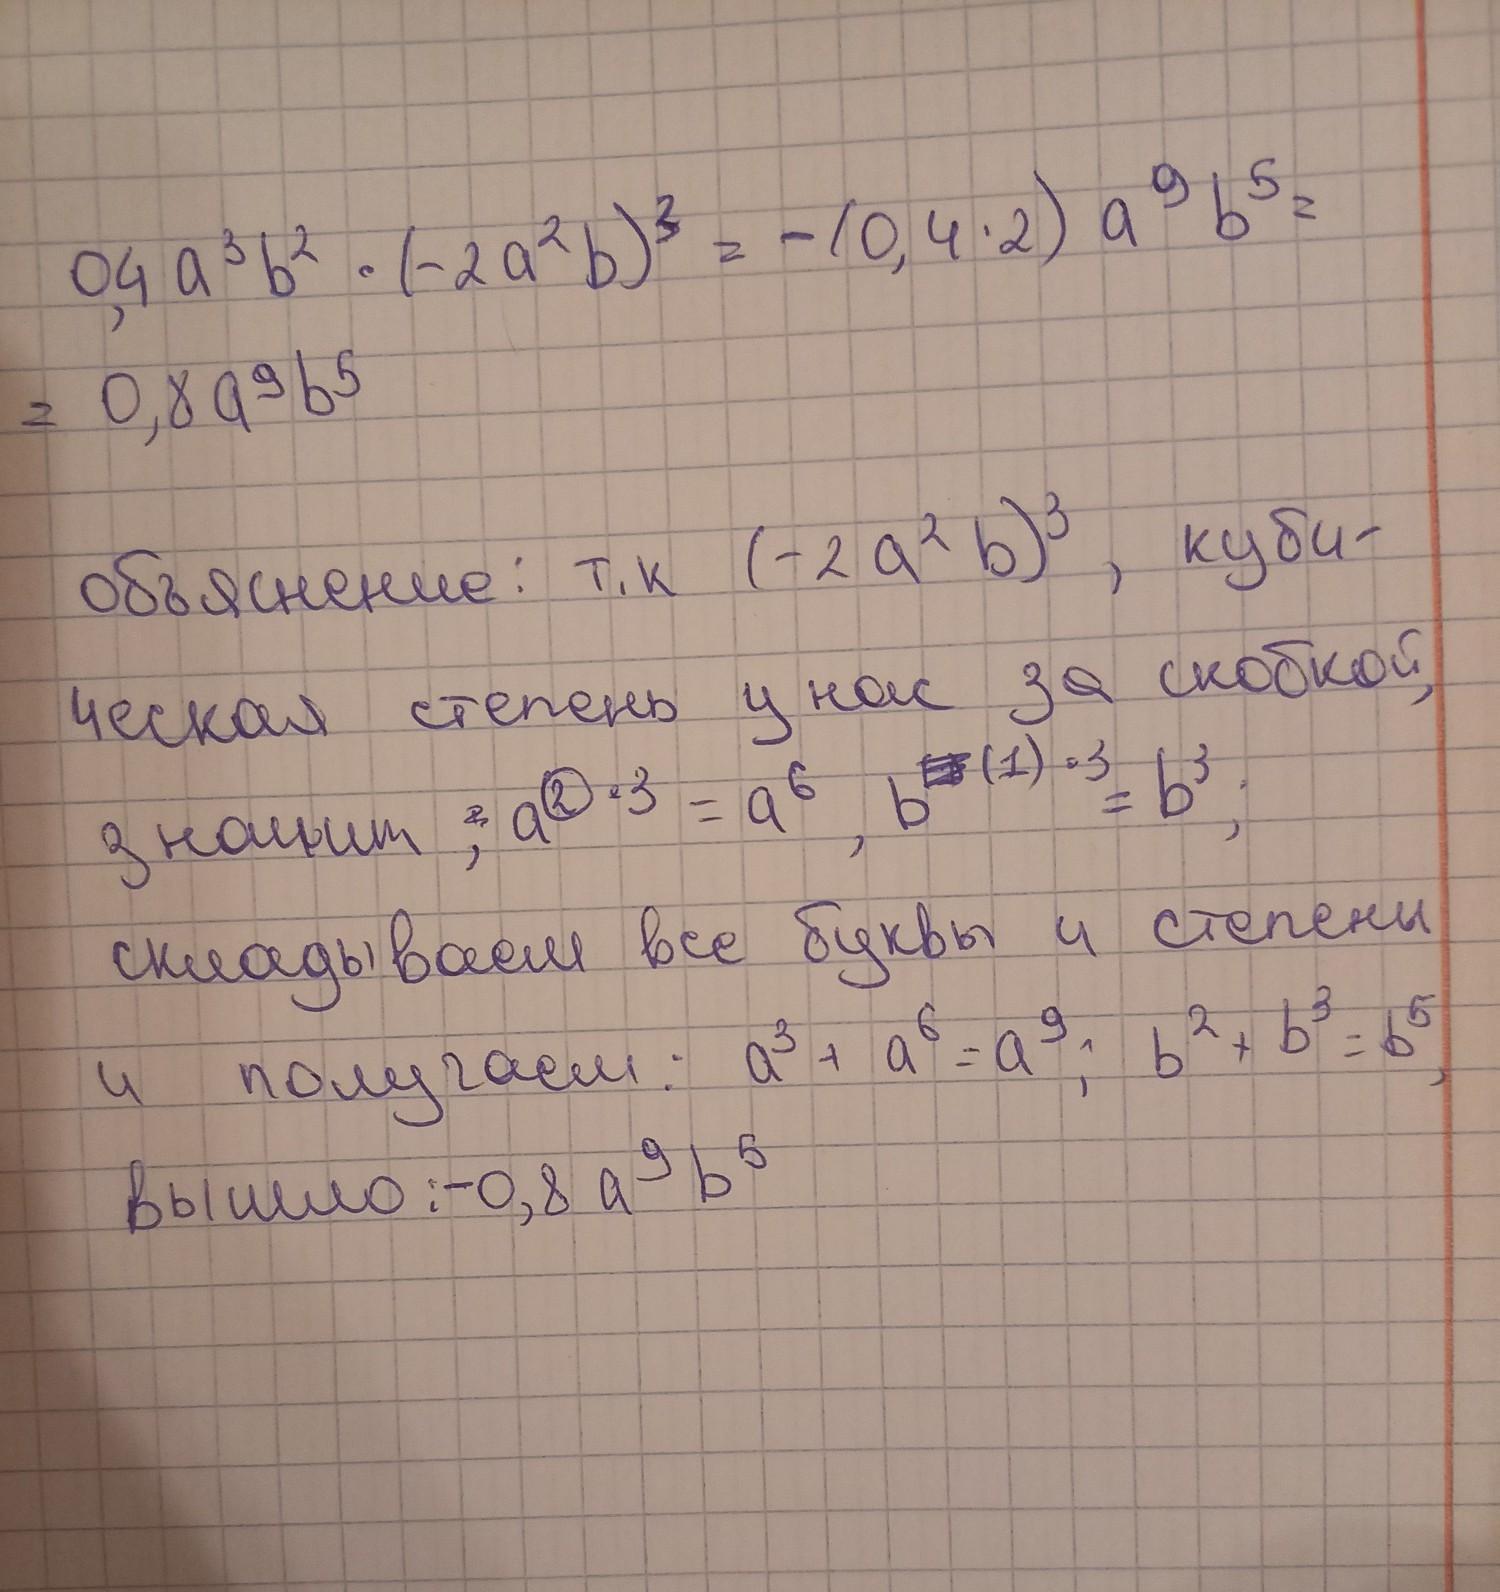 0,4 a³b² · (-2a²b)³ = -(0,4·2) a⁹b⁵ =
= 0,8a⁹b⁵
объяснение: т.к (-2a²b)³, куби-
ческая степень у нас за скобкой,
значит ; a²·³ = a⁶, b⁽¹⁾·³ = b³;
складываем все буквы и степени
и получаем: a³ + a⁶ = a⁹; b² + b³ = b⁵,
вышло: -0,8 a⁹b⁵